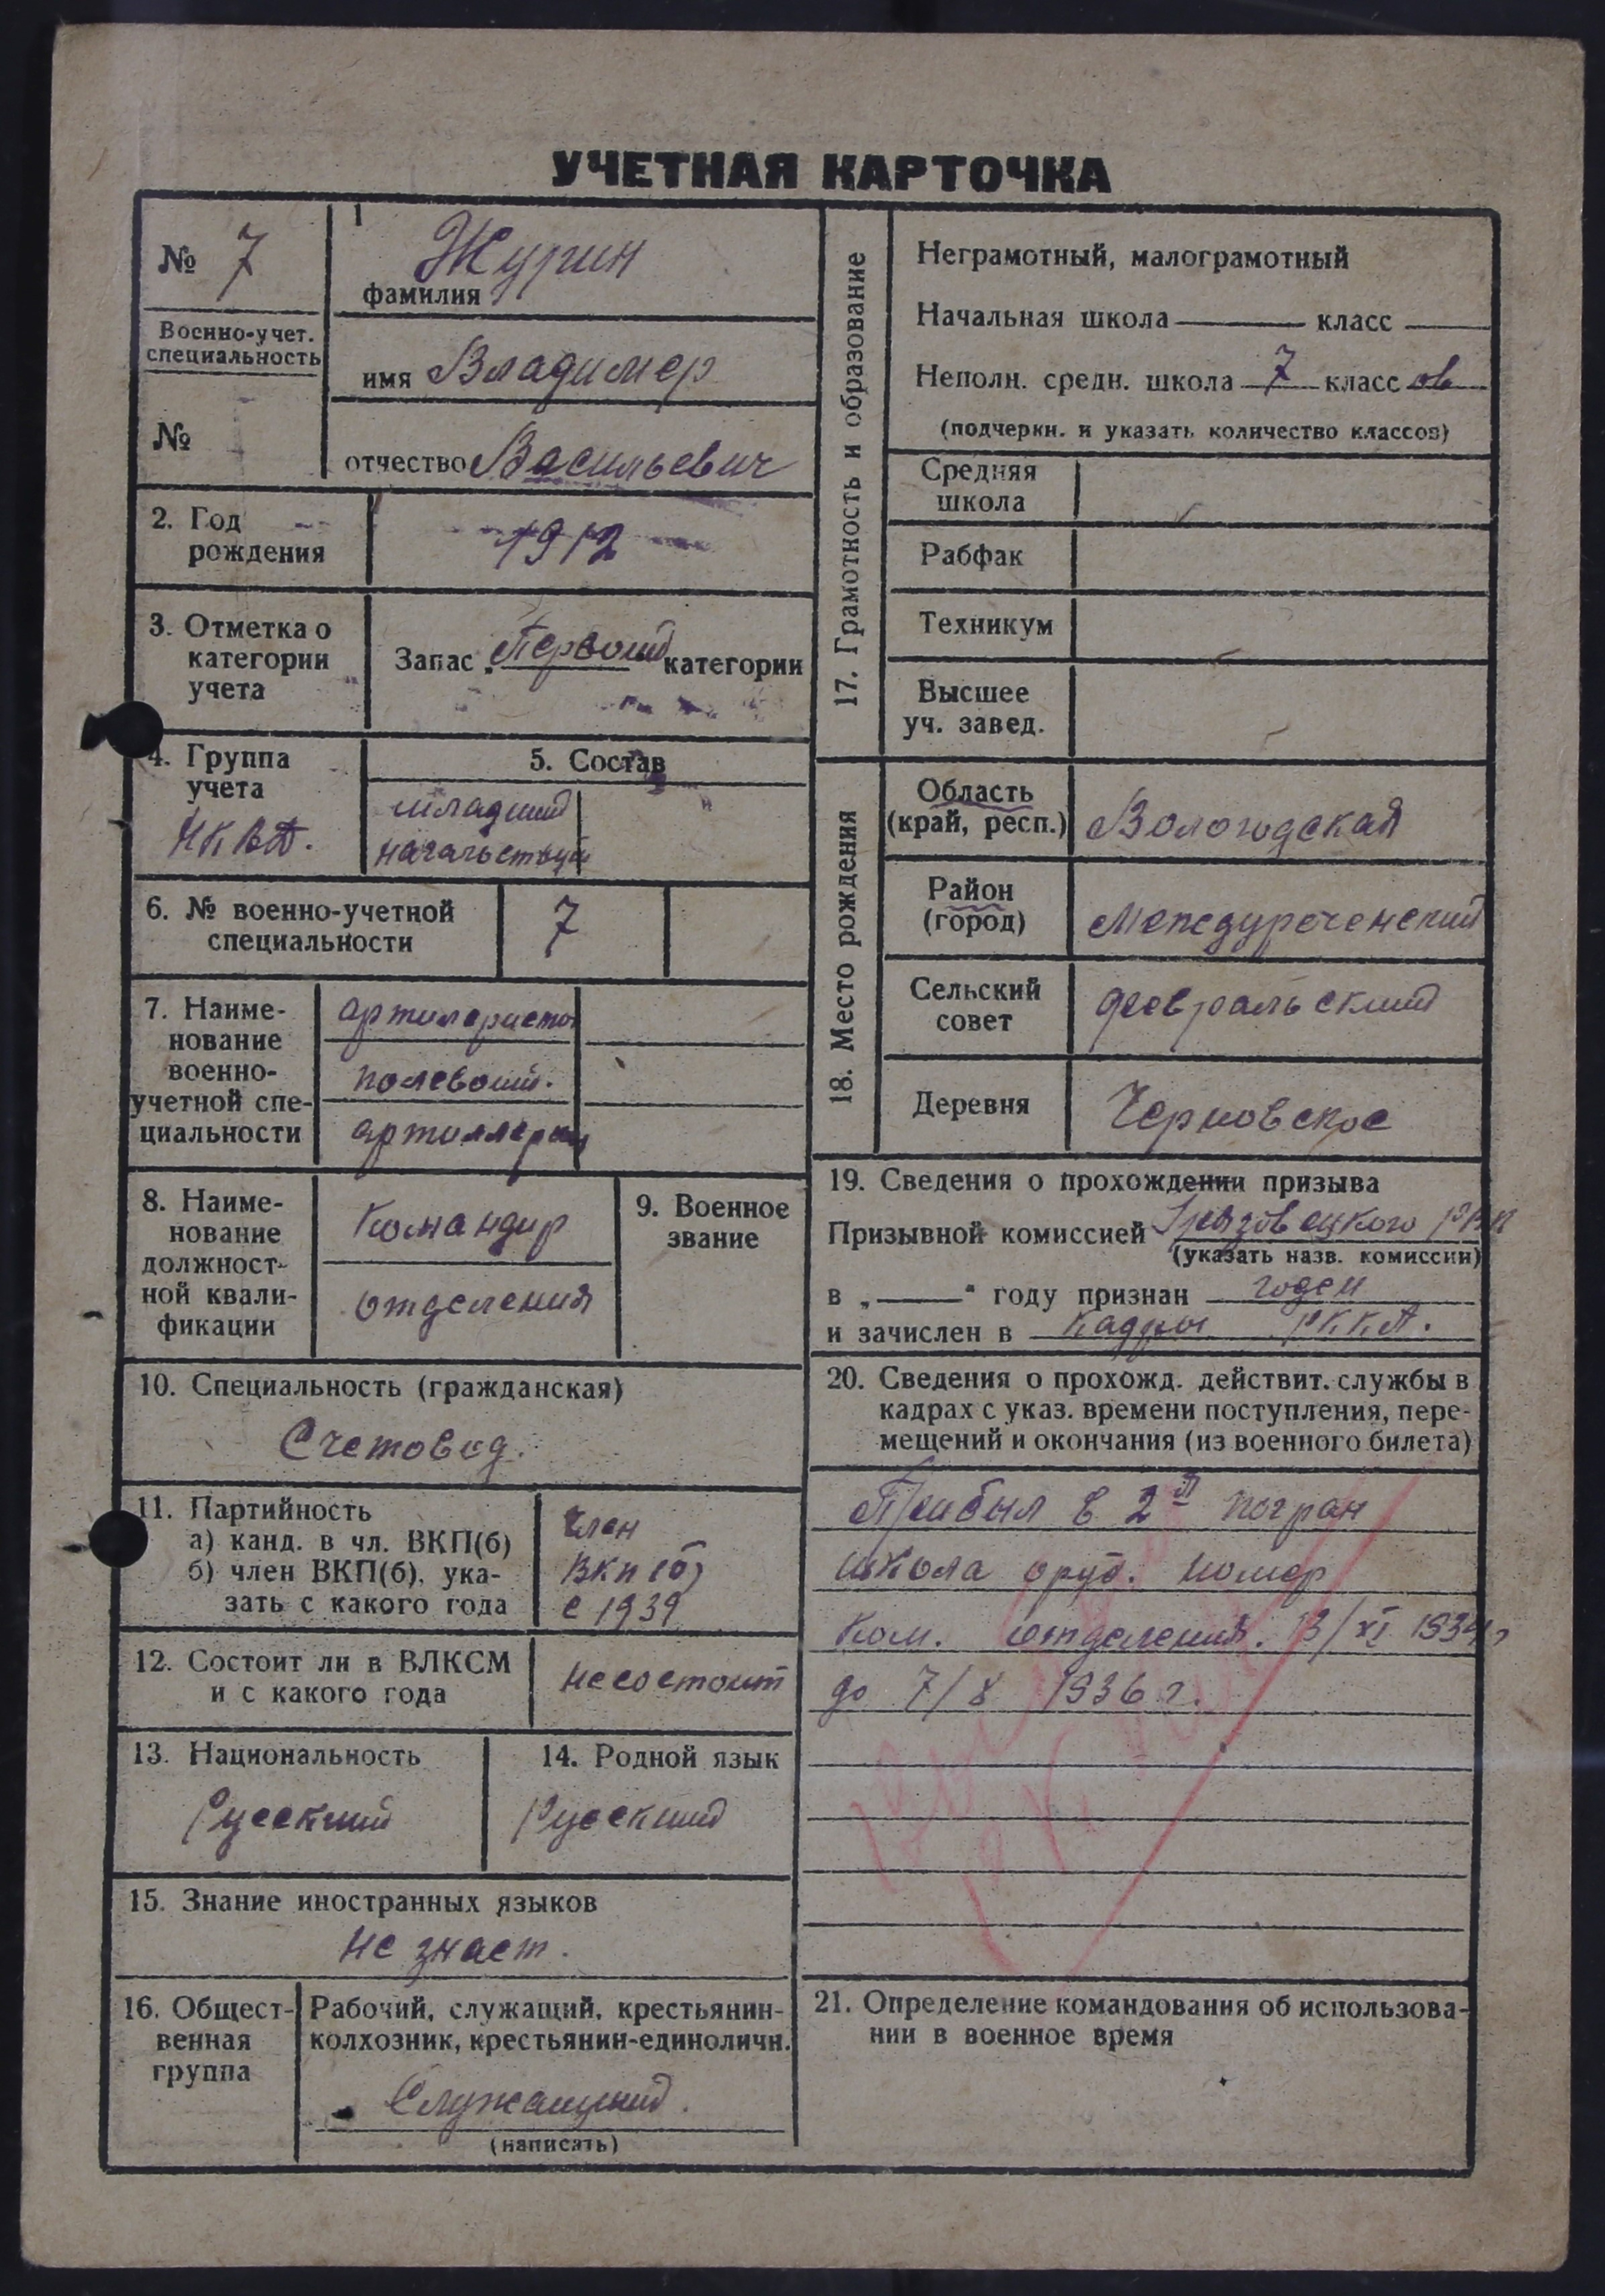 УЧЕТНАЯ КАРТОЧКА
№ 7
Военно-учет.
специальность
№
1
Журин
фамилия
имя Владимер
отчество Васильевич
2. Год
рождения
1912
3. Отметка о
категории
учета
Запас „Первой категории
4. Группа
учета
НКВД.
5. Состав
младший
начальствую
6. № военно-учетной
специальности
7
7. Наиме-
нование
военно-
учетной спе-
циальности
артилеристы
полевой.
артиллерии
8. Наиме-
нование
должност-
ной квали-
фикации
Командир
отделения
9. Военное
звание
10. Специальность (гражданская)
Счетовод.
11. Партийность
а) канд. в чл. ВКП(б)
б) член ВКП(б), ука-
зать с какого года
Член
ВКП(б)
с 1939
12. Состоит ли в ВЛКСМ
и с какого года
Не состоит
13. Национальность
Русский
14. Родной язык
Русский
15. Знание иностранных языков
не знает.
16. Общест-
венная
группа
Рабочий, служащий, крестьянин-
колхозник, крестьянин-единоличн.
Служащий.
(написать)
17. Грамотность и образование
Неграмотный, малограмотный
Начальная школа класс
Неполн. средн. школа 7 класс ов
(подчеркн. и указать количество классов)
Средняя
школа
Рабфак
Техникум
Высшее
уч. завед.
18. Место рождения
Область
(край, респ.)
Вологодская
Район
(город)
Междуреченский
Сельский
совет
Февральский
Деревня
Черновское
19. Сведения о прохождении призыва
Призывной комиссией Грязовецкого РВК
(указать назв. комиссии)
в „ " году признан годен
и зачислен в кадры РККА.
20. Сведения о прохожд. действит. службы в
кадрах с указ. времени поступления, пере-
мещений и окончания (из военного билета)
Прибыл в 2й погран
школа оруд. номер
Ком. отделения. 13/XI 1934г
до 7/8 1936 г.
21. Определение командования об использова-
нии в военное время